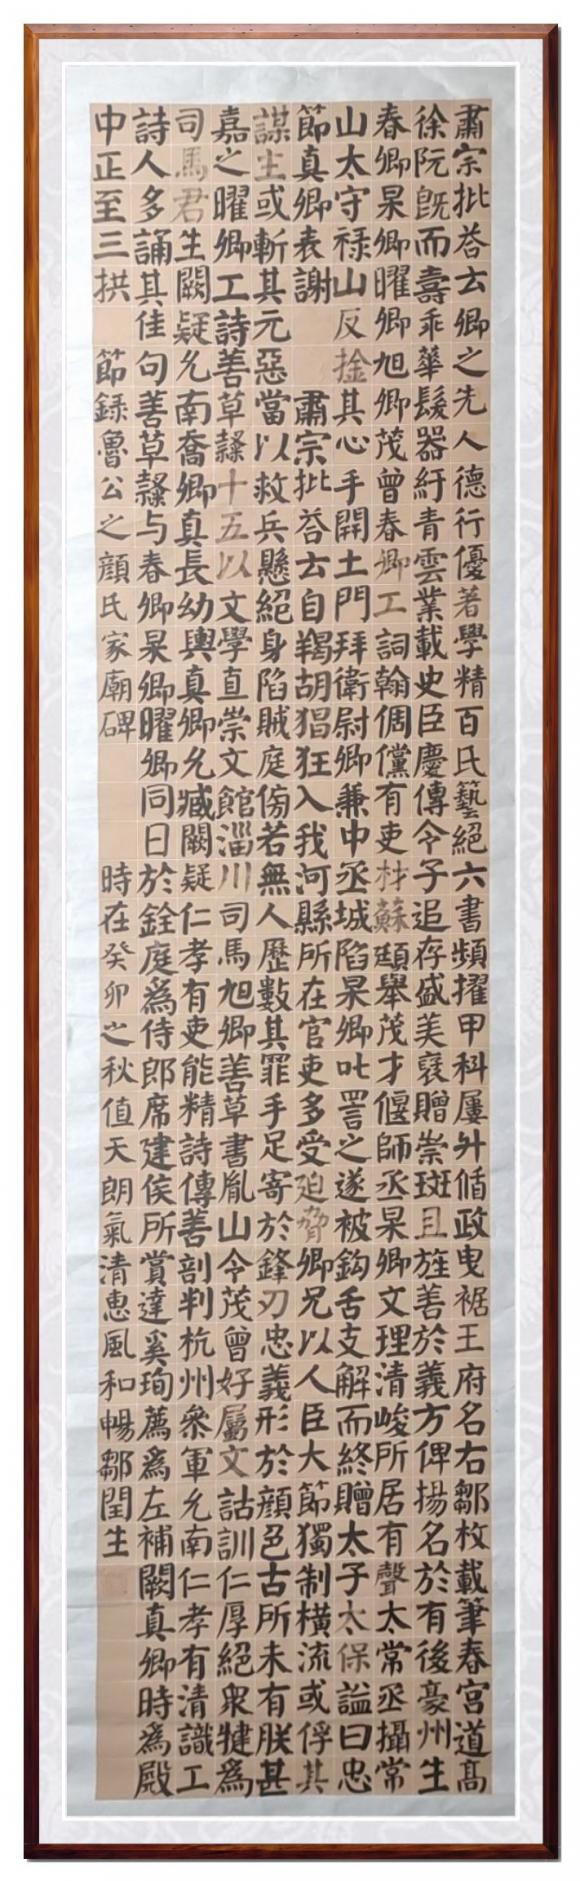 肅宗批荅云卿之先人德行優著學精百氏藝絕六書頻擢甲科屢升循政曳裾王府名右鄒枚載筆春宮道髙
徐阮既而壽乖華髮器紆青雲業載史臣慶傳令子追存盛美裒贈崇班且旌善於義方俾揚名於有後豪州生
春卿杲卿曜卿旭卿茂曾春卿工詞翰倜儻有吏材蘇頲舉茂才偃師丞杲卿文理清峻所居有聲太常丞攝常
山太守祿山反捦其心手開土門拜衛尉卿兼中丞城陷杲卿叱詈之遂被鈎舌支解而終贈太子太保謚曰忠
節真卿表謝 肅宗批荅云自羯胡猖狂入我河縣所在官吏多受迫脅卿兄以人臣大節獨制橫流或俘其
謀主或斬其元惡當以救兵懸絕身陷賊庭傍若無人歷數其罪手足寄於鋒刃忠義形於顏色古所未有朕甚
嘉之曜卿工詩善草隸十五以文學直崇文館淄川司馬旭卿善草書胤山令茂曾好屬文詁訓仁厚絕衆犍為
司馬君生闕疑允南喬卿真長幼輿真卿允臧闕疑仁孝有吏能精詩傳善剖判杭州參軍允南仁孝有清識工
詩人多誦其佳句善草隸与春卿杲卿曜卿同日於銓庭為侍郎席建侯所賞達奚珣薦為左補闕真卿時為殿
中正至三拱 節録魯公之顏氏家廟碑 時在癸卯之秋值天朗氣清惠風和暢鄒閏生